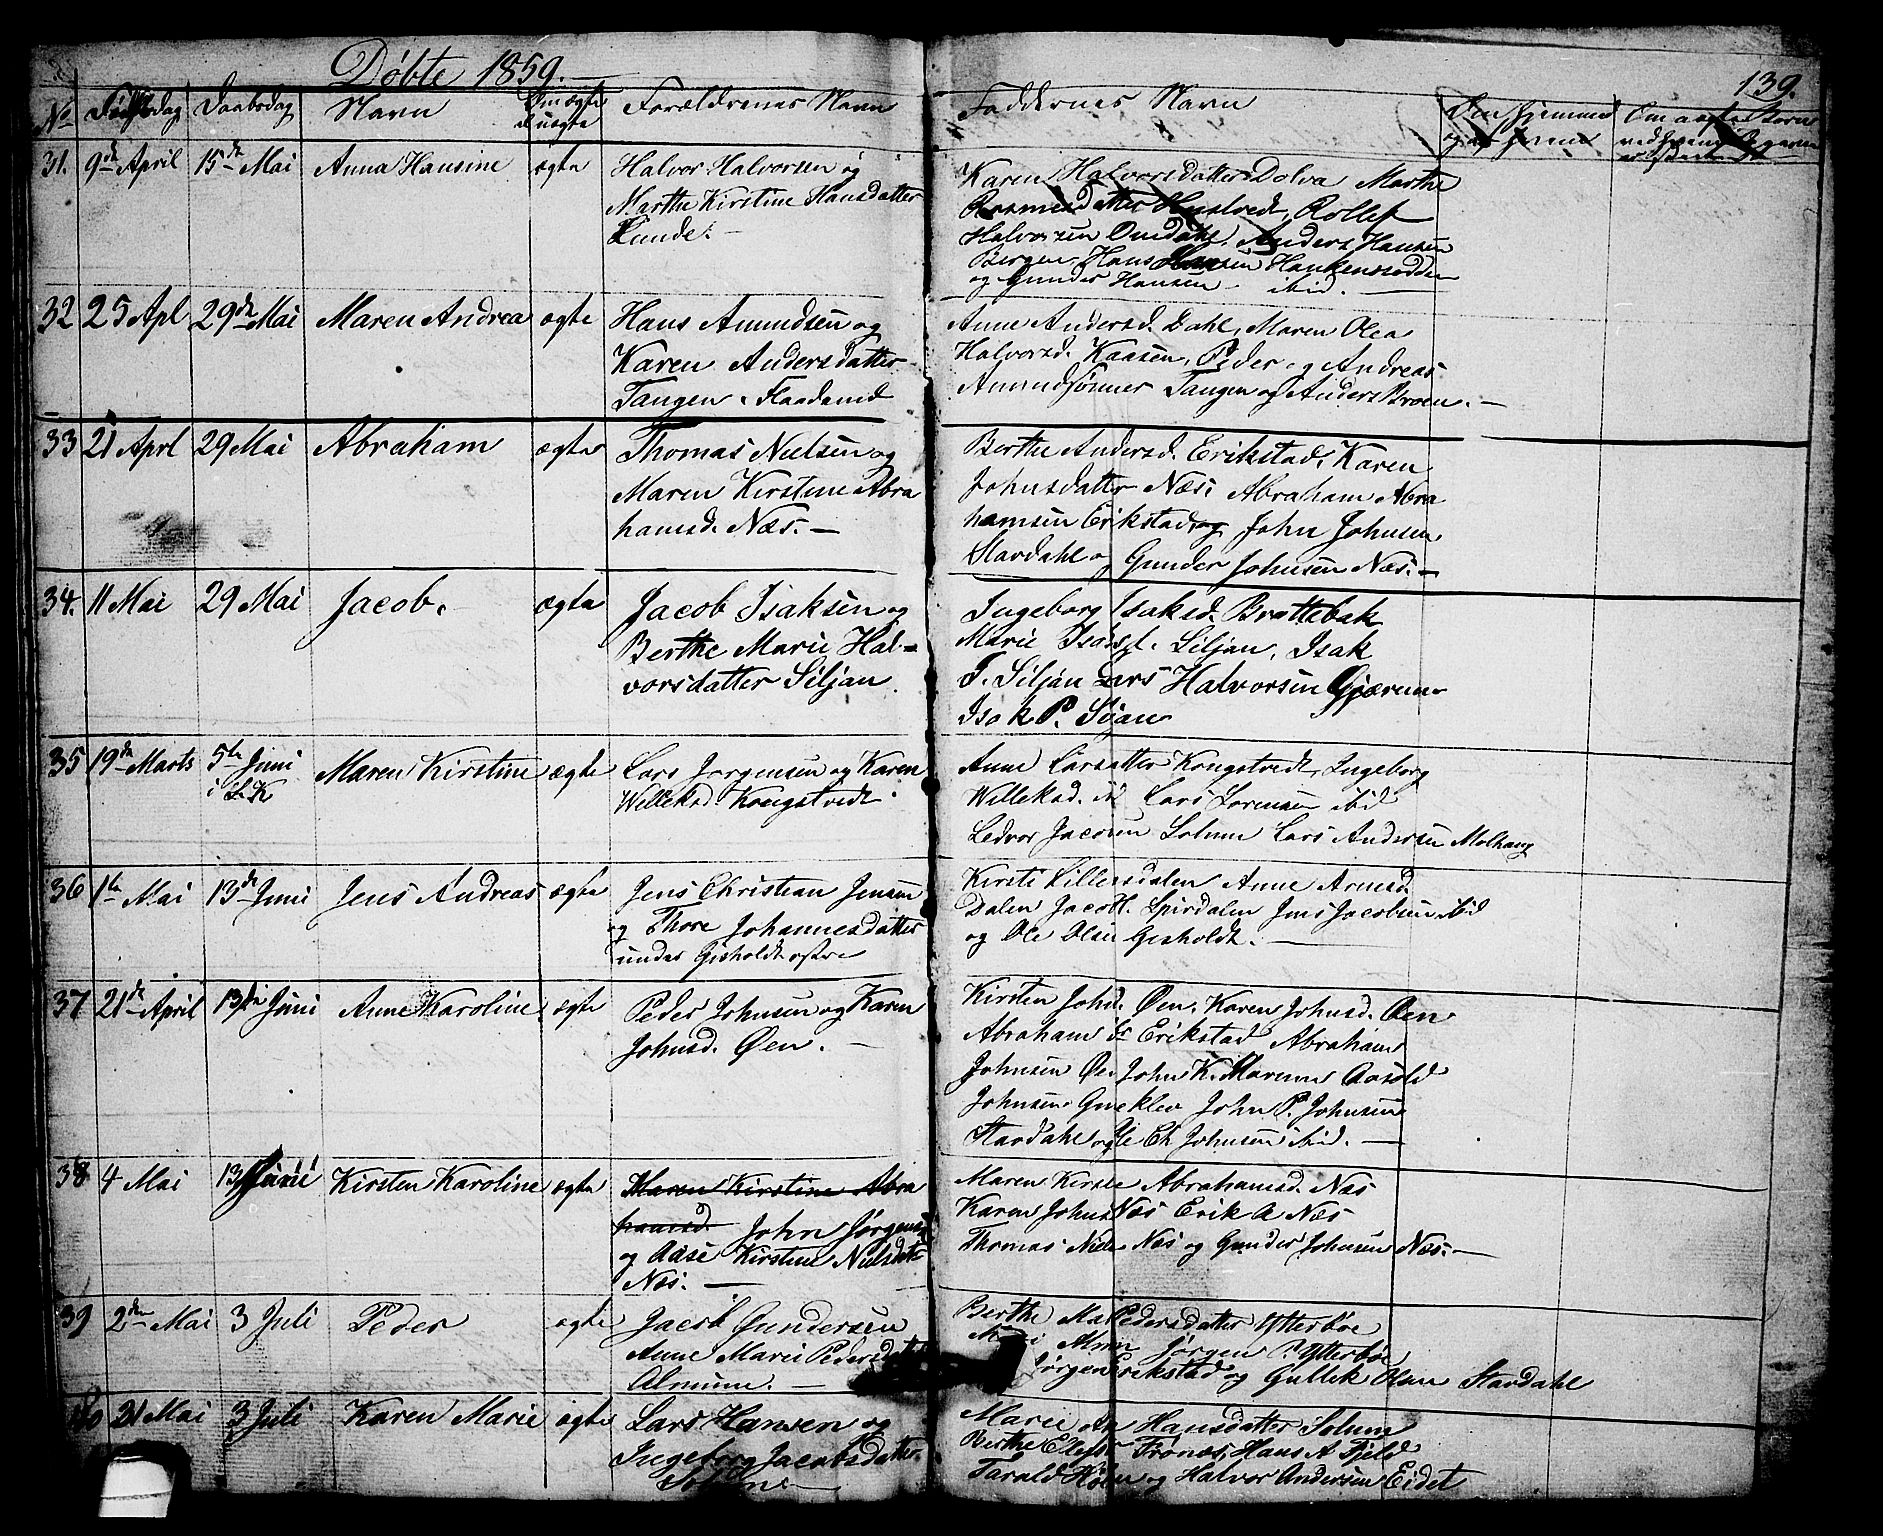 Døbte 1859.
139.
No Fødselsdag Daabsdag Navn Om ægte el. uægte Forældrenes Navn Faddernes Navn
31. 9de April 15de Mai Anna Hansine ægte Halvor Halvorsen og
Marthe Kirstine Hansdatter
Lunde. —
Karen Halvorsdatter Dolva Marthe
Rasmusdatter Hustvedt, Rollef
Halvorsen Omdahl, Anders Hansen
Bergen Hans Hansen Haukenæsodden
og Gunder Hansen ibid. —
32 25 Apl 29de Mai Maren Andrea ægte Hans Amundsen og
Karen Andersdatter
Tangen, Flaadsund
Anne Andersd. Dahl, Maren Olea
Halvorsd. Kaasen, Peder og Andreas
Amundsønner Tangen og Anders Broen. —
33 21 Aprl 29 Mai Abraham ægte Thomas Nielsen og
Maren Kirstine Abra
hamsd. Næs. —
Berthe Andersd. Erikstad, Karen
Johnsdatter Næs, Abraham Abra
hamsen Erikstad og John Johnsen
Stavdahl og Gunder Johnsen Næs. —
34. 11 Mai 29 Mai Jacob. ægte Jacob Isaksen og
Berthe Marie Hal=
vorsdatter Siljan
Ingeborg Isaksd. Brattebek
Marie Isaksd. Siljan, Isak
T. Siljan Lars Halvorsen Gjærum
Isak P. Siljan
35 19de Marts 5te Juni Maren Kirstine ægte Lars Jørgensen og Karen
i S. K
Willeksd. Kongstvedt
Anne Larsdatter Kongstvedt, Ingeborg
Willeksd. ibid Lars Sørensen ibid
Ledvor Jacobsen Solum Lars Andersen Molhaug
36 1te Mai 13de Juni Jens Andreas ægte Jens Christian Jensen
og Thore Johannesdatter
under Gisholdt østre
Kirsti Lillersdalen Anne Arnesd.
Dalen Jacob L. Spirdalen Jens Jacobsen ibid
og Ole Olsen Gisholdt. —
37 21de April 13de Juni Anne Karoline ægte Peder Johnsen og Karen
Johnsd. Øen. —
Kirsten Johnsd. Øen, Karen Johnsd. Øen
Abraham Erikstad Abraham
Johnsen Øen John K. Marum Aasold
Johnsen Gueklev John P. Johnsen
Stavdahl og Johnsen ibid. —
38 4 Mai 13 Juni Kirsten Karoline ægte Maren Kirstine Abra
hamsd. John Jørgensen
og Aase Kirstine Nielsdat
Næs. —
Maren Kirstine Abrahamsd. Næs
Karen Johns Næs Erik A Næs
Thomas Niels Næs og Gunder Johnsen Næs. —
39 2den Mai 3 Juli Peder ægte Jacob Gundersen
Anne Marie Pedersdat
Almune. —
Berthe Ma Pedersdatter Ytterbøe
Jørgen P. Ytterbøe
Jørgen Erikstad og Gullek Olsen Stavdahl
40 21 Mai 3 Juli Karen Marie ægte Lars Hansen og
Ingeborg Jacobsdatter
Solum —
Marie Hansdatter Solum
Berthe Elefsd Trones, Hans A. Fjeld
Tarald Holm og Halvor Andersen Eidet